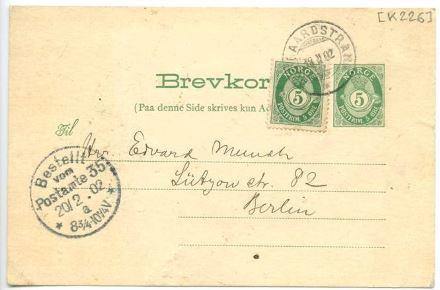 [K226]
AARDSTRAN
II 02
Brevkor
(Paa denne Side skrives kun Ad
NORGE
5
POSTFRIM 5 ØRE
NORGE
5
POSTFRIM 5 ØRE
Til
Hr. Edvard Munch
Lützow str. 82
Berlin
Bestellt
vom
Postamte 35
20/2 02
a.
* 8¾-10¼V *